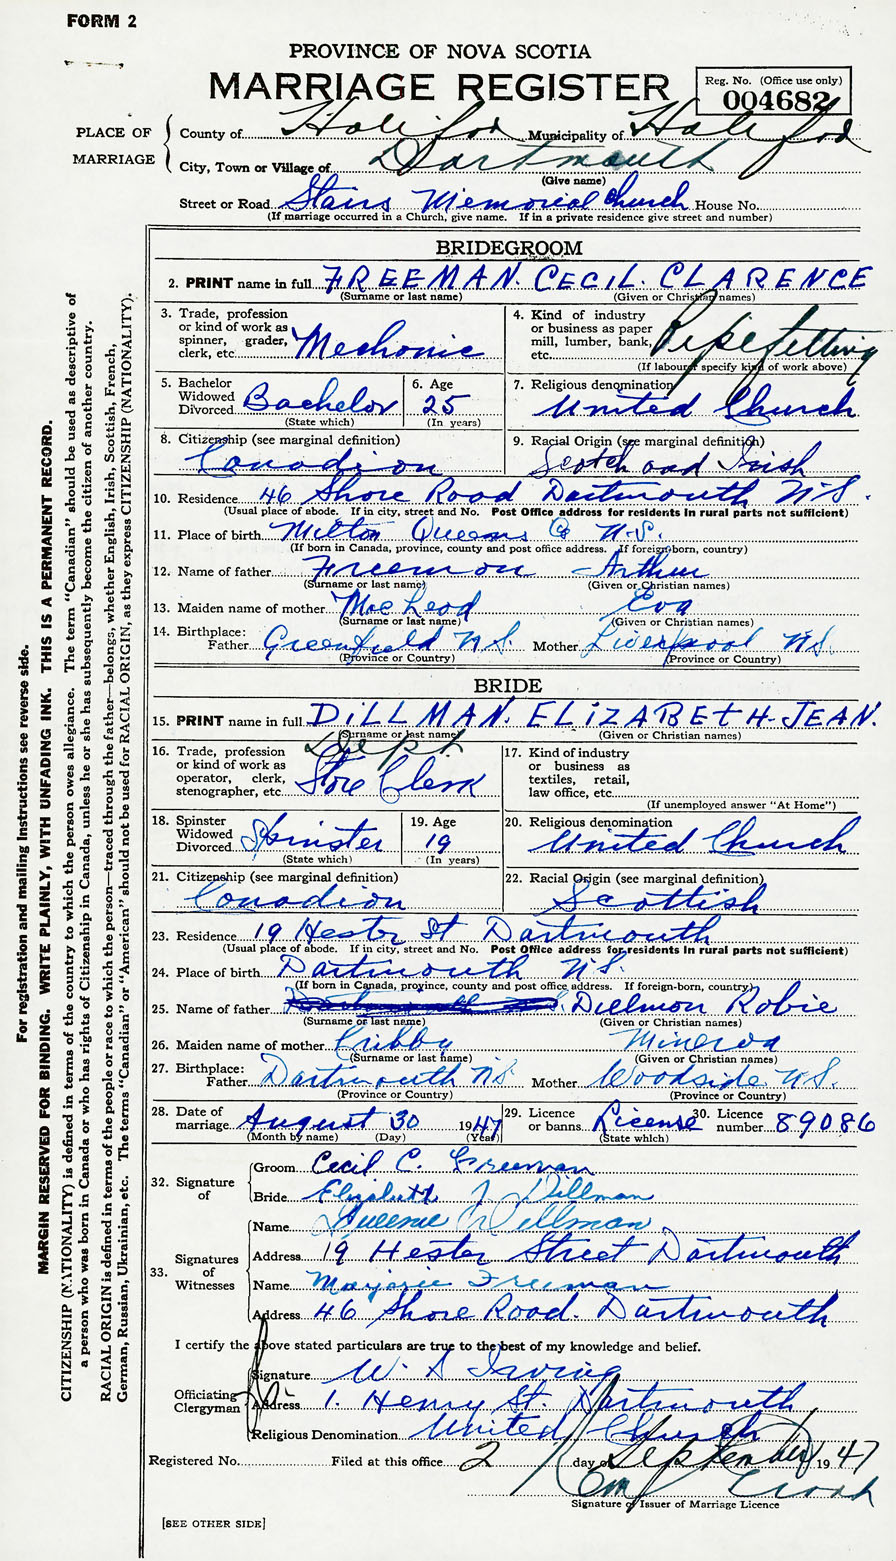 FORM 2
PROVINCE OF NOVA SCOTIA
MARRIAGE REGISTER
Reg. No. (Office use only)
004682
PLACE OF MARRIAGE
County of Halifax Municipality of Halifax
City, Town or Village of Dartmouth
(Give name)
Street or Road Stairs Memorial Church House No.
(If marriage occurred in a Church, give name. If in a private residence give street and number)
BRIDEGROOM
2. PRINT name in full FREEMAN. CECIL. CLARENCE
(Surname or last name) (Given or Christian names)
3. Trade, profession or kind of work as spinner, grader, clerk, etc. Mechanic
4. Kind of industry or business as paper mill, lumber, bank, etc. Pipefitting
(If labour specify kind of work above)
5. Bachelor Widowed Divorced Bachelor
(State which)
6. Age 25
(In years)
7. Religious denomination United Church
8. Citizenship (see marginal definition) Canadian
9. Racial Origin (see marginal definition) Scotch and Irish
10. Residence 46 Shore Road Dartmouth N.S.
(Usual place of abode. If in city, street and No. Post Office address for residents in rural parts not sufficient)
11. Place of birth Milton Queens Co N.S.
(If born in Canada, province, county and post office address. If foreign-born, country)
12. Name of father Freeman Arthur
(Surname or last name) (Given or Christian names)
13. Maiden name of mother MacLeod Eva
(Surname or last name) (Given or Christian names)
14. Birthplace: Father Greenfield N.S. Mother Liverpool N.S.
(Province or Country) (Province or Country)
BRIDE
15. PRINT name in full DILLMAN. ELIZABETH-JEAN.
(Surname or last name) (Given or Christian names)
16. Trade, profession or kind of work as operator, clerk, stenographer, etc. Dept. Store Clerk
17. Kind of industry or business as textiles, retail, law office, etc.
(If unemployed answer "At Home")
18. Spinster Widowed Divorced Spinster
(State which)
19. Age 19
(In years)
20. Religious denomination United Church
21. Citizenship (see marginal definition) Canadian
22. Racial Origin (see marginal definition) Scottish
23. Residence 19 Hester St Dartmouth
(Usual place of abode. If in city, street and No. Post Office address for residents in rural parts not sufficient)
24. Place of birth Dartmouth N.S.
(If born in Canada, province, county and post office address. If foreign-born, country)
25. Name of father Dillman Robie
(Surname or last name) (Given or Christian names)
26. Maiden name of mother Cribby Minerva
(Surname or last name) (Given or Christian names)
27. Birthplace: Father Dartmouth N.S. Mother Woodside N.S.
(Province or Country) (Province or Country)
28. Date of marriage August 30 1947
(Month by name) (Day) (Year)
29. Licence or banns License
(State which)
30. Licence number 89086
32. Signature of
Groom Cecil C. Freeman
Bride Elizabeth J Dillman
33. Signatures of Witnesses
Name Dillman
Address 19 Hester Street Dartmouth
Name Marjorie Freeman
Address 46 Shore Road. Dartmouth
I certify the above stated particulars are true to the best of my knowledge and belief.
Officiating Clergyman
Signature W. S Irving
Address 1. Henry St. Dartmouth
Religious Denomination United Church
Registered No. Filed at this office 2 day of September 1947
Signature of Issuer of Marriage Licence
[SEE OTHER SIDE]
For registration and mailing instructions see reverse side.
MARGIN RESERVED FOR BINDING. WRITE PLAINLY, WITH UNFADING INK. THIS IS A PERMANENT RECORD.
CITIZENSHIP (NATIONALITY) is defined in terms of the country to which the person owes allegiance. The term "Canadian" should be used as descriptive of
a person who was born in Canada or who has rights of Citizenship in Canada, unless he or she has subsequently become the citizen of another country.
RACIAL ORIGIN is defined in terms of the people or race to which the person—traced through the father—belongs, whether English, Irish, Scottish, French,
German, Russian, Ukrainian, etc. The terms "Canadian" or "American" should not be used for RACIAL ORIGIN, as they express CITIZENSHIP (NATIONALITY).